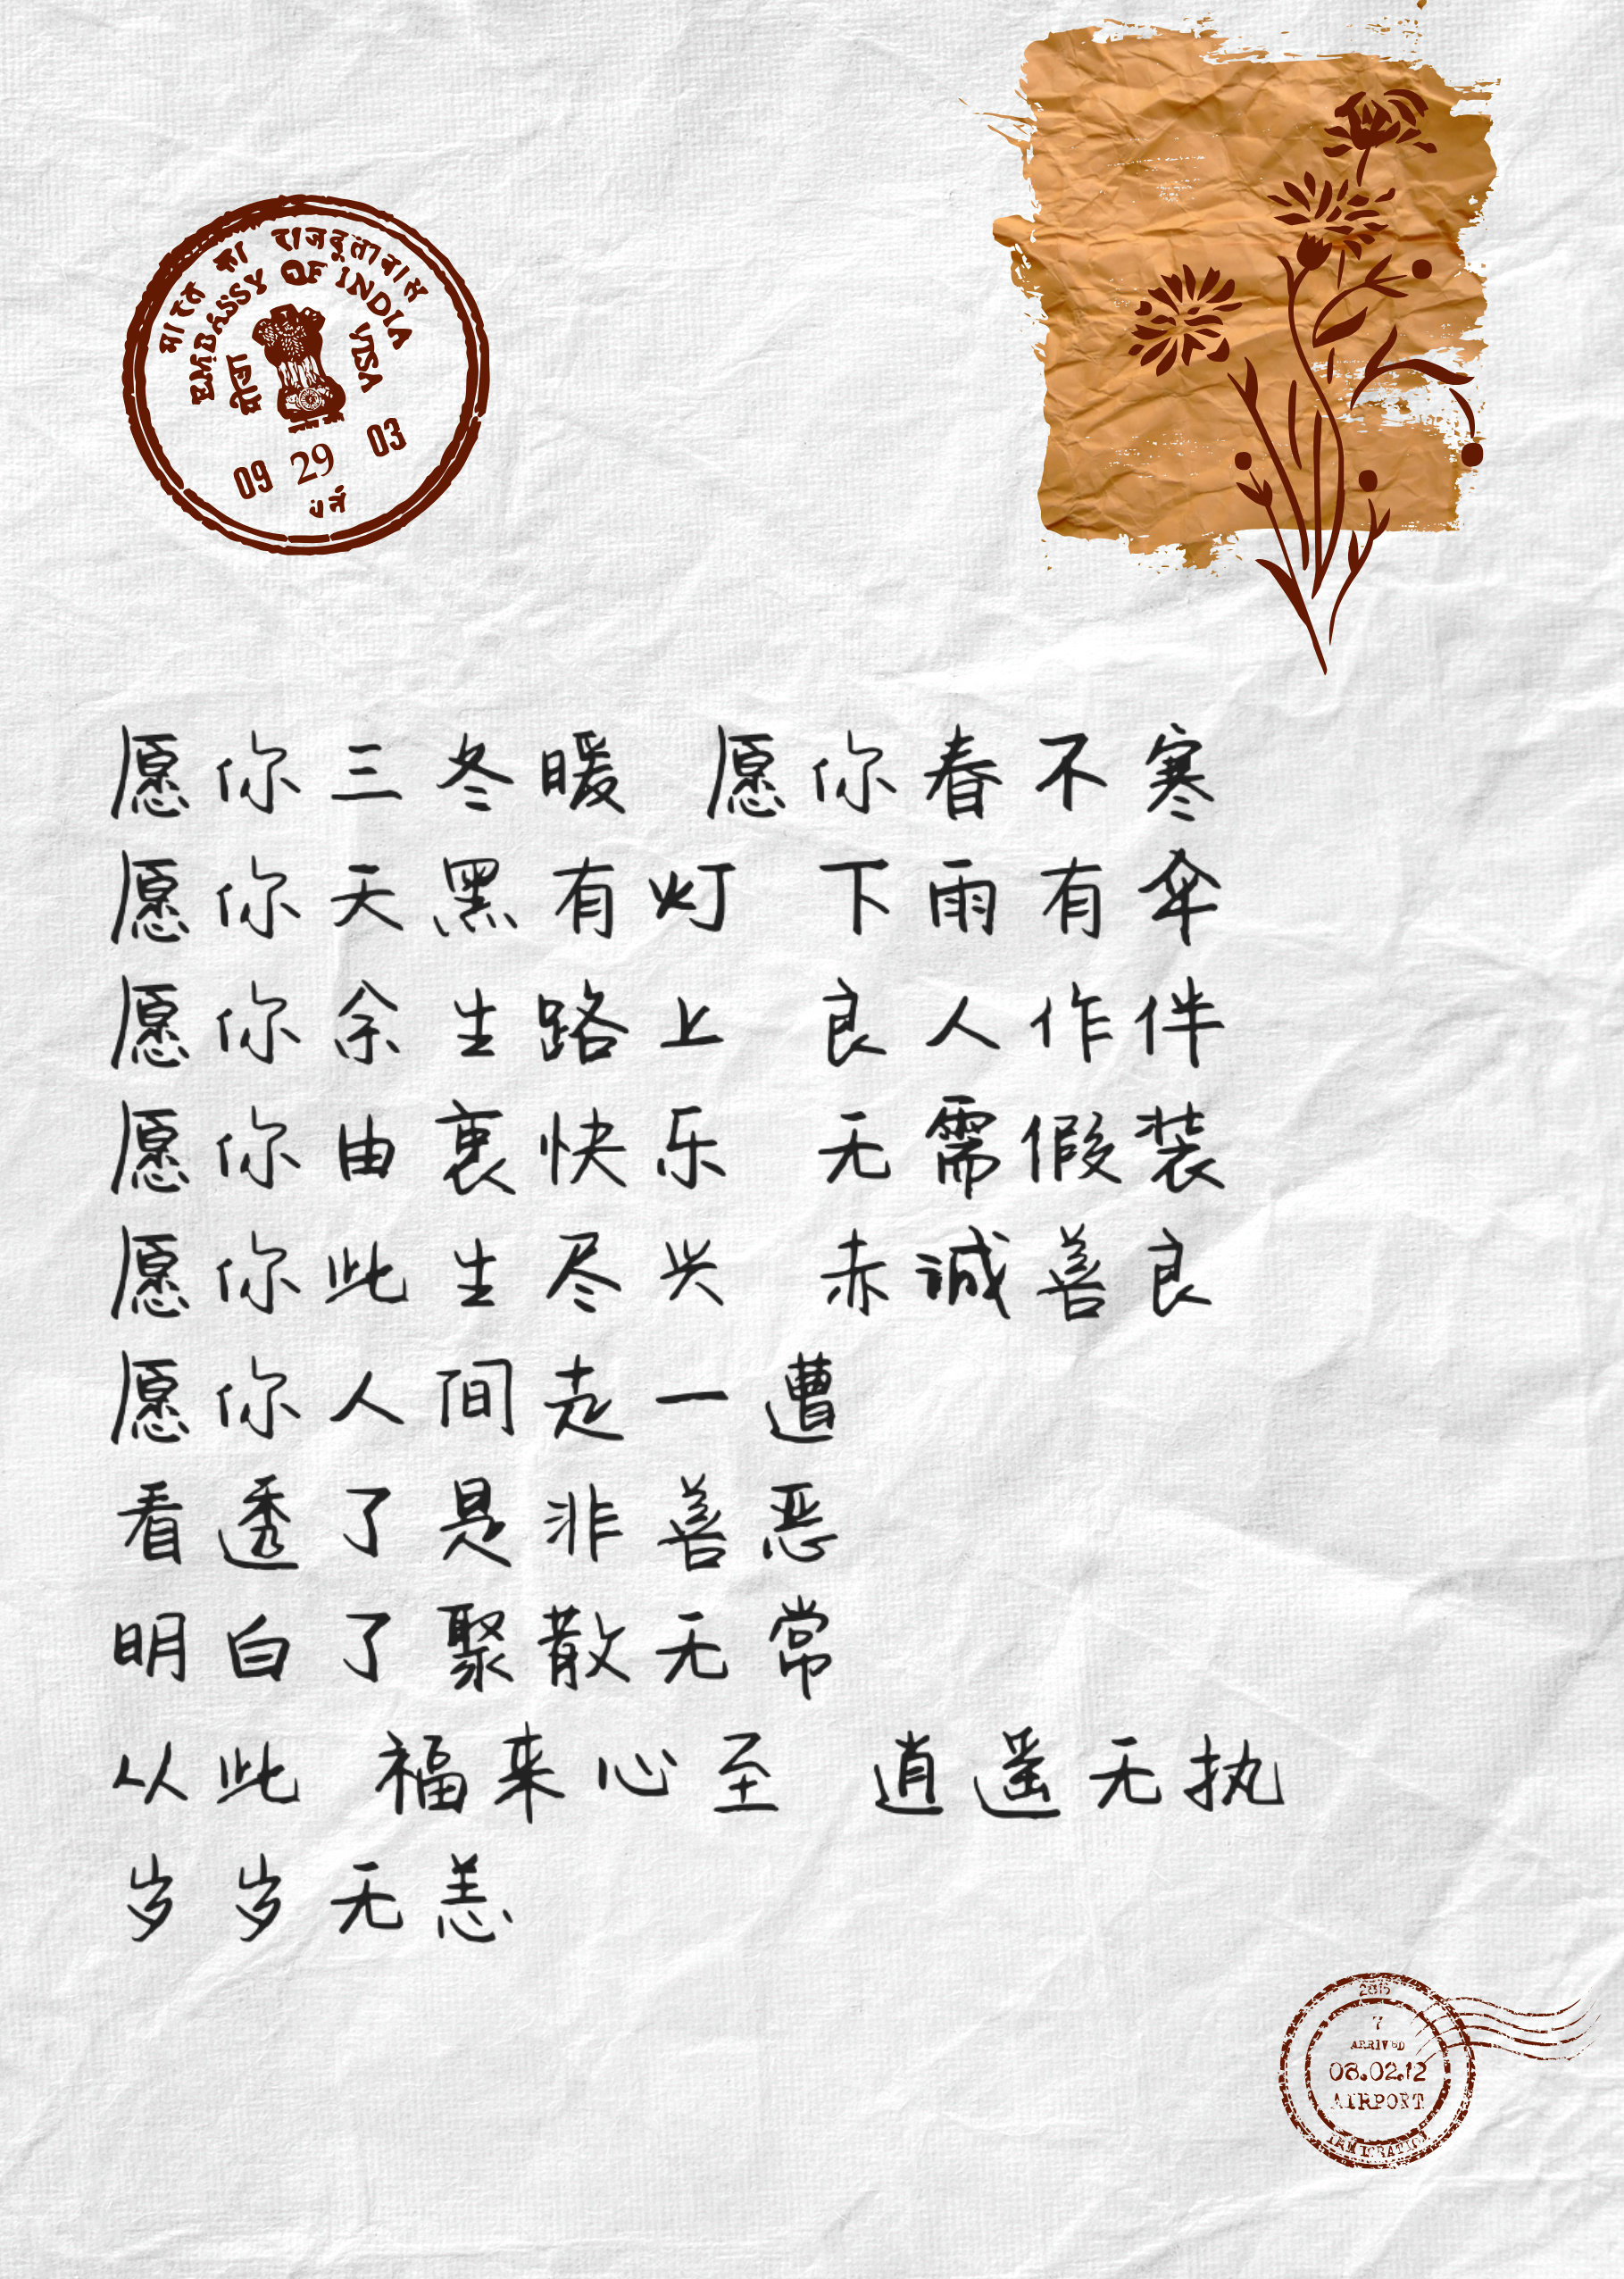 भारत का राजदूतावास
EMBASSY OF INDIA
वीजा
VISA
09 29 03
愿你三冬暖 愿你春不寒
愿你天黑有灯 下雨有伞
愿你余生路上 良人作伴
愿你由衷快乐 无需假装
愿你此生尽兴 赤诚善良
愿你人间走一遭
看透了是非善恶
明白了聚散无常
从此 福来心至 逍遥无执
岁岁无恙
7
ARRIVED
08.02.12
AIRPORT
IMMIGRATION